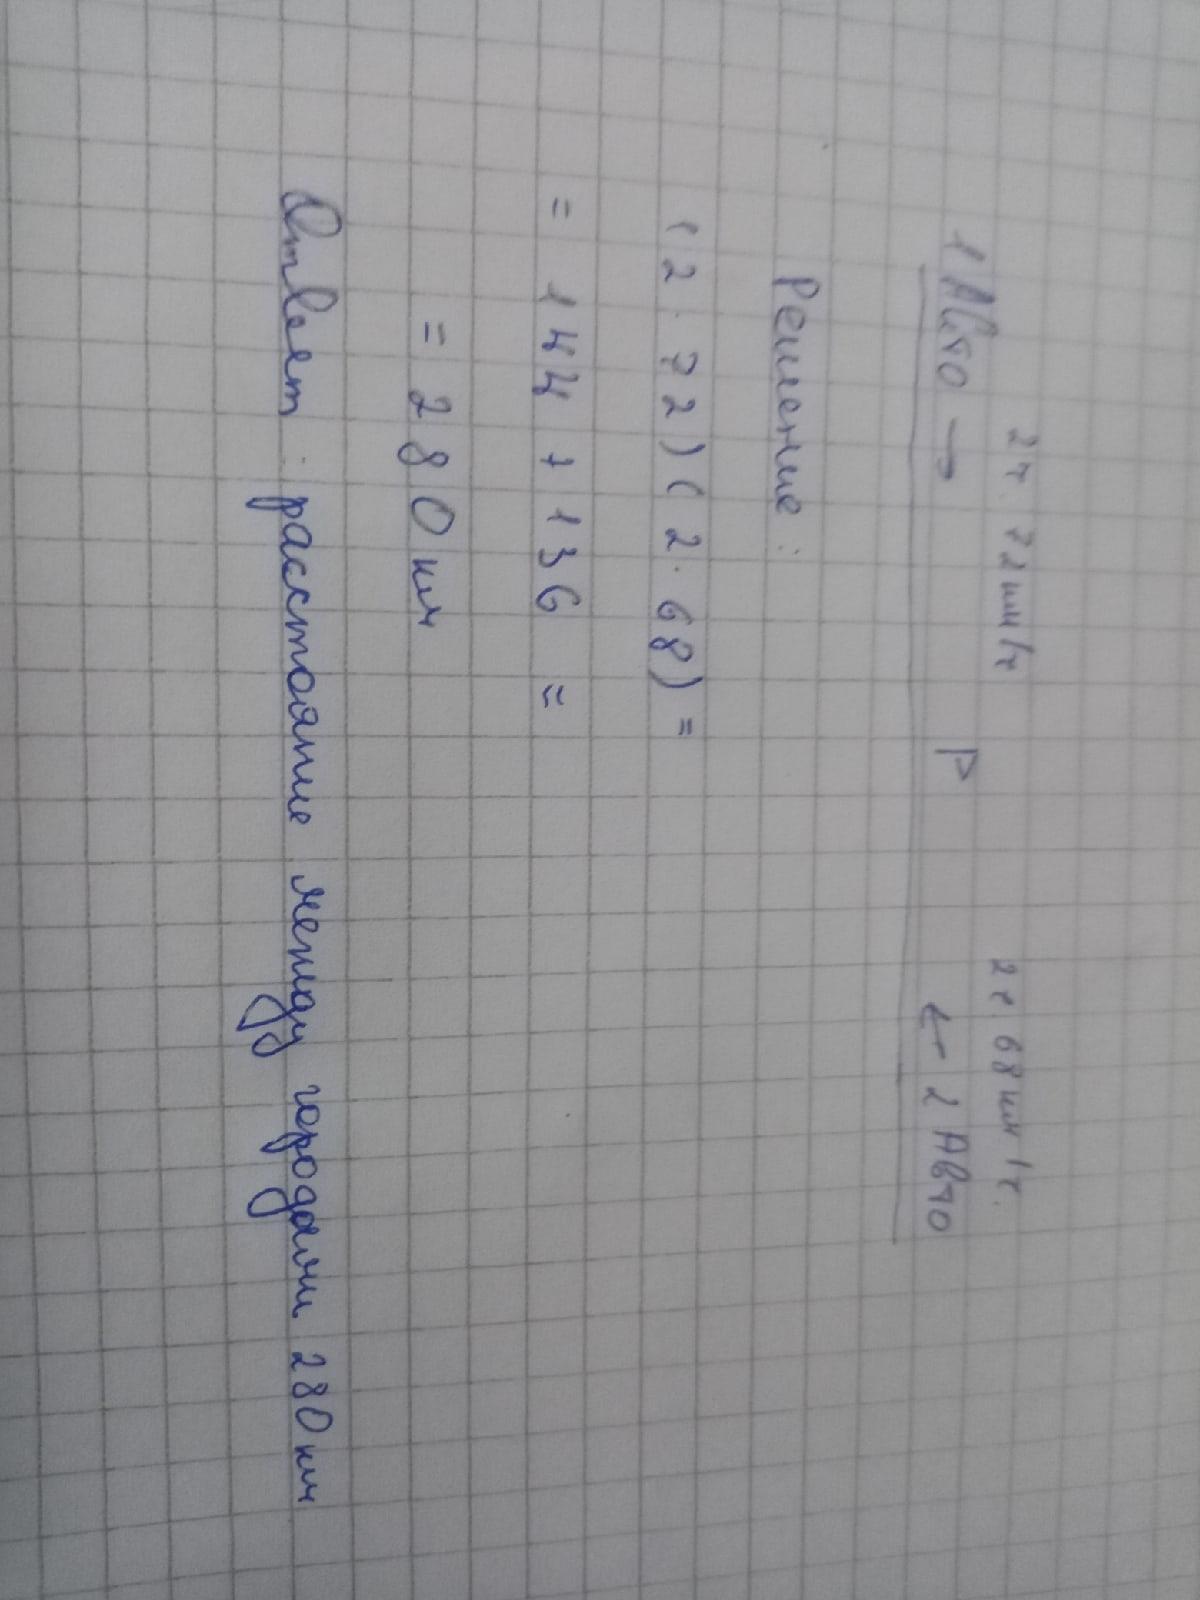 2ч 72км/ч 2ч. 68км/ч.
1 Авто → Р ← 2 Авто
Решение:
(2·72)(2·68)=
= 144 + 136 =
= 280км
Ответ: расстояние между городами 280км